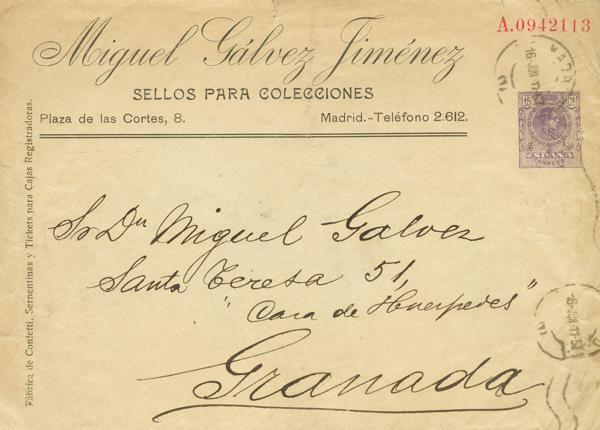 A.0942113
Miguel Gálvez Jiménez
SELLOS PARA COLECCIONES
Plaza de las Cortes, 8. Madrid.-Teléfono 2.612.
15 15
ESPAÑA
CORREOS
16 JUN 17
Sr Dn Miguel Galvez
Santa Teresa 51,
"Casa de Huerpedes"
Granada
Fábrica de Confetti, Serpentinas y Tickets para Cajas Registradoras.